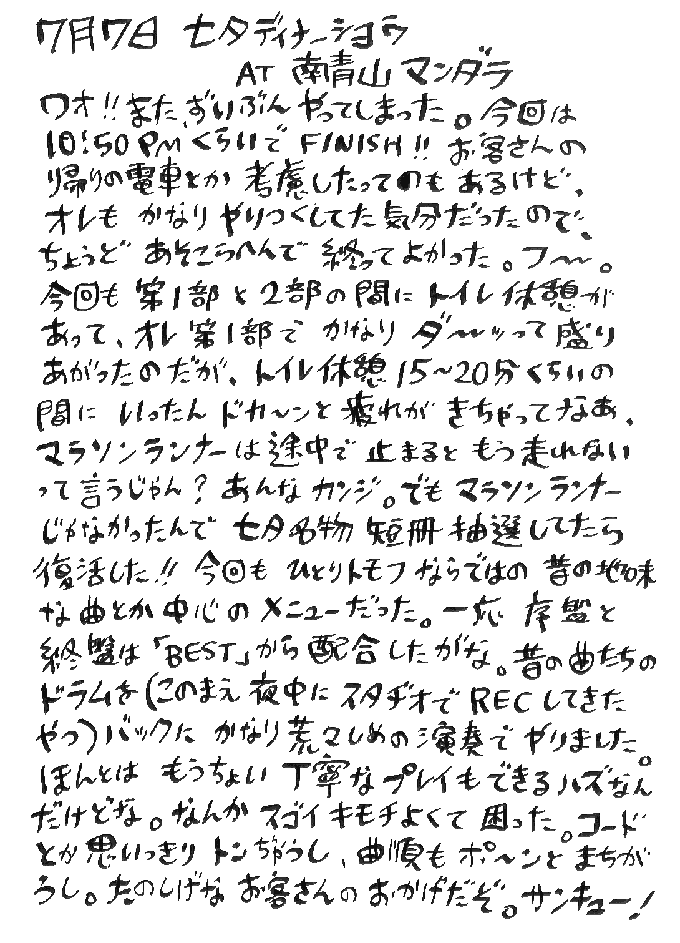 7月7日 七夕ディナーショウ
AT 南青山マンダラ
ワオ!!また、ずいぶんやってしまった。今回は
10:50PMくらいでFINISH!! お客さんの
帰りの電車とか 考慮したってのもあるけど、
オレも かなり やりつくしてた気分だったので、
ちょうど あそこらへんで 終ってよかった。フ〜〜。
今回も 第1部と2部の間に トイレ休憩が
あって、オレ第1部で かなり ダ〜〜ッって盛り
あがったのだが、トイレ休憩15〜20分くらいの
間に いったん ドカ〜ンと 疲れが きちゃってなあ、
マラソンランナーは途中で 止まると もう走れない
って言うじゃん?あんなカンジ。でも マラソンランナー
じゃなかったんで 七夕名物 短冊抽選してたら
復活した!! 今回も ひとりトモフならではの 昔の地味
な曲とか中心の メニューだった。一応 序盤と
終盤は「BEST」から配合したがな。昔の曲たちの
ドラムを(このまえ 夜中に スタヂオで RECしてきた
やつ)バックに かなり荒々しめの演奏で やりました。
ほんとは もうちょい 丁寧な プレイもできるハズなん
だけどな。なんか スゴイ キモチよくて 困った。コード
とか思いっきり トンぢゃうし、曲順も ポ〜ンと まちが
うし。たのしげな お客さんの おかげだぞ。サンキュー!